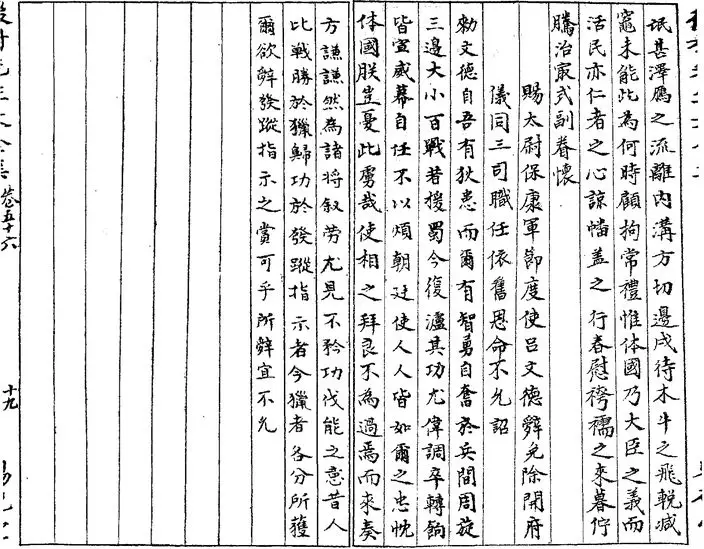 氓甚澤鴈之流離内溝方切邊戍待木牛之飛輓减
竈未能此為何時顧拘常禮惟体國乃大臣之義而
活民亦仁者之心諒幡盖之行春慰袴襦之來暮佇
騰治最式副眷懷
賜太尉保康軍節度使吕文德辭免除開府
儀同三司職任依舊恩命不允詔
勑文德自吾有狄患而爾有智勇自奮於兵間周旋
三邊大小百戰昔援蜀今復瀘其功尤偉調卒轉餉
皆宣威幕自任不以煩朝廷使人人皆如爾之忠忱
体國朕豈憂此虜哉使相之拜良不為過焉而來奏
方謙謙然為諸將叙劳尤見不矜功伐能之意昔人
比戦勝於獵歸功於發蹤指示者今獵者各分所獲
爾欲辭發蹤指示之賞可乎所辭宜不允
卷五十六
十九